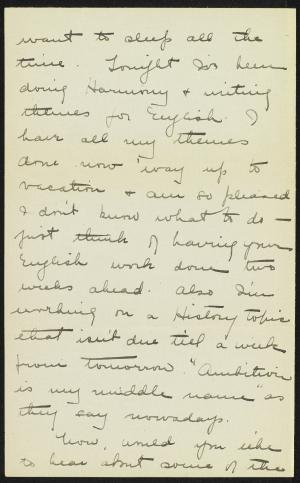 want to sleep all the
time. Tonight I've been
doing Harmony & writing
themes for English. I
have all my themes
done now 'way up to
vacation & am so pleased
I don't know what to do —
just think of having your
English work done two
weeks ahead. Also I'm
working on a History topic
that isn't due till a week
from tomorrow. "Ambition
is my middle name" as
they say nowadays.
Now, would you like
to hear about some of the